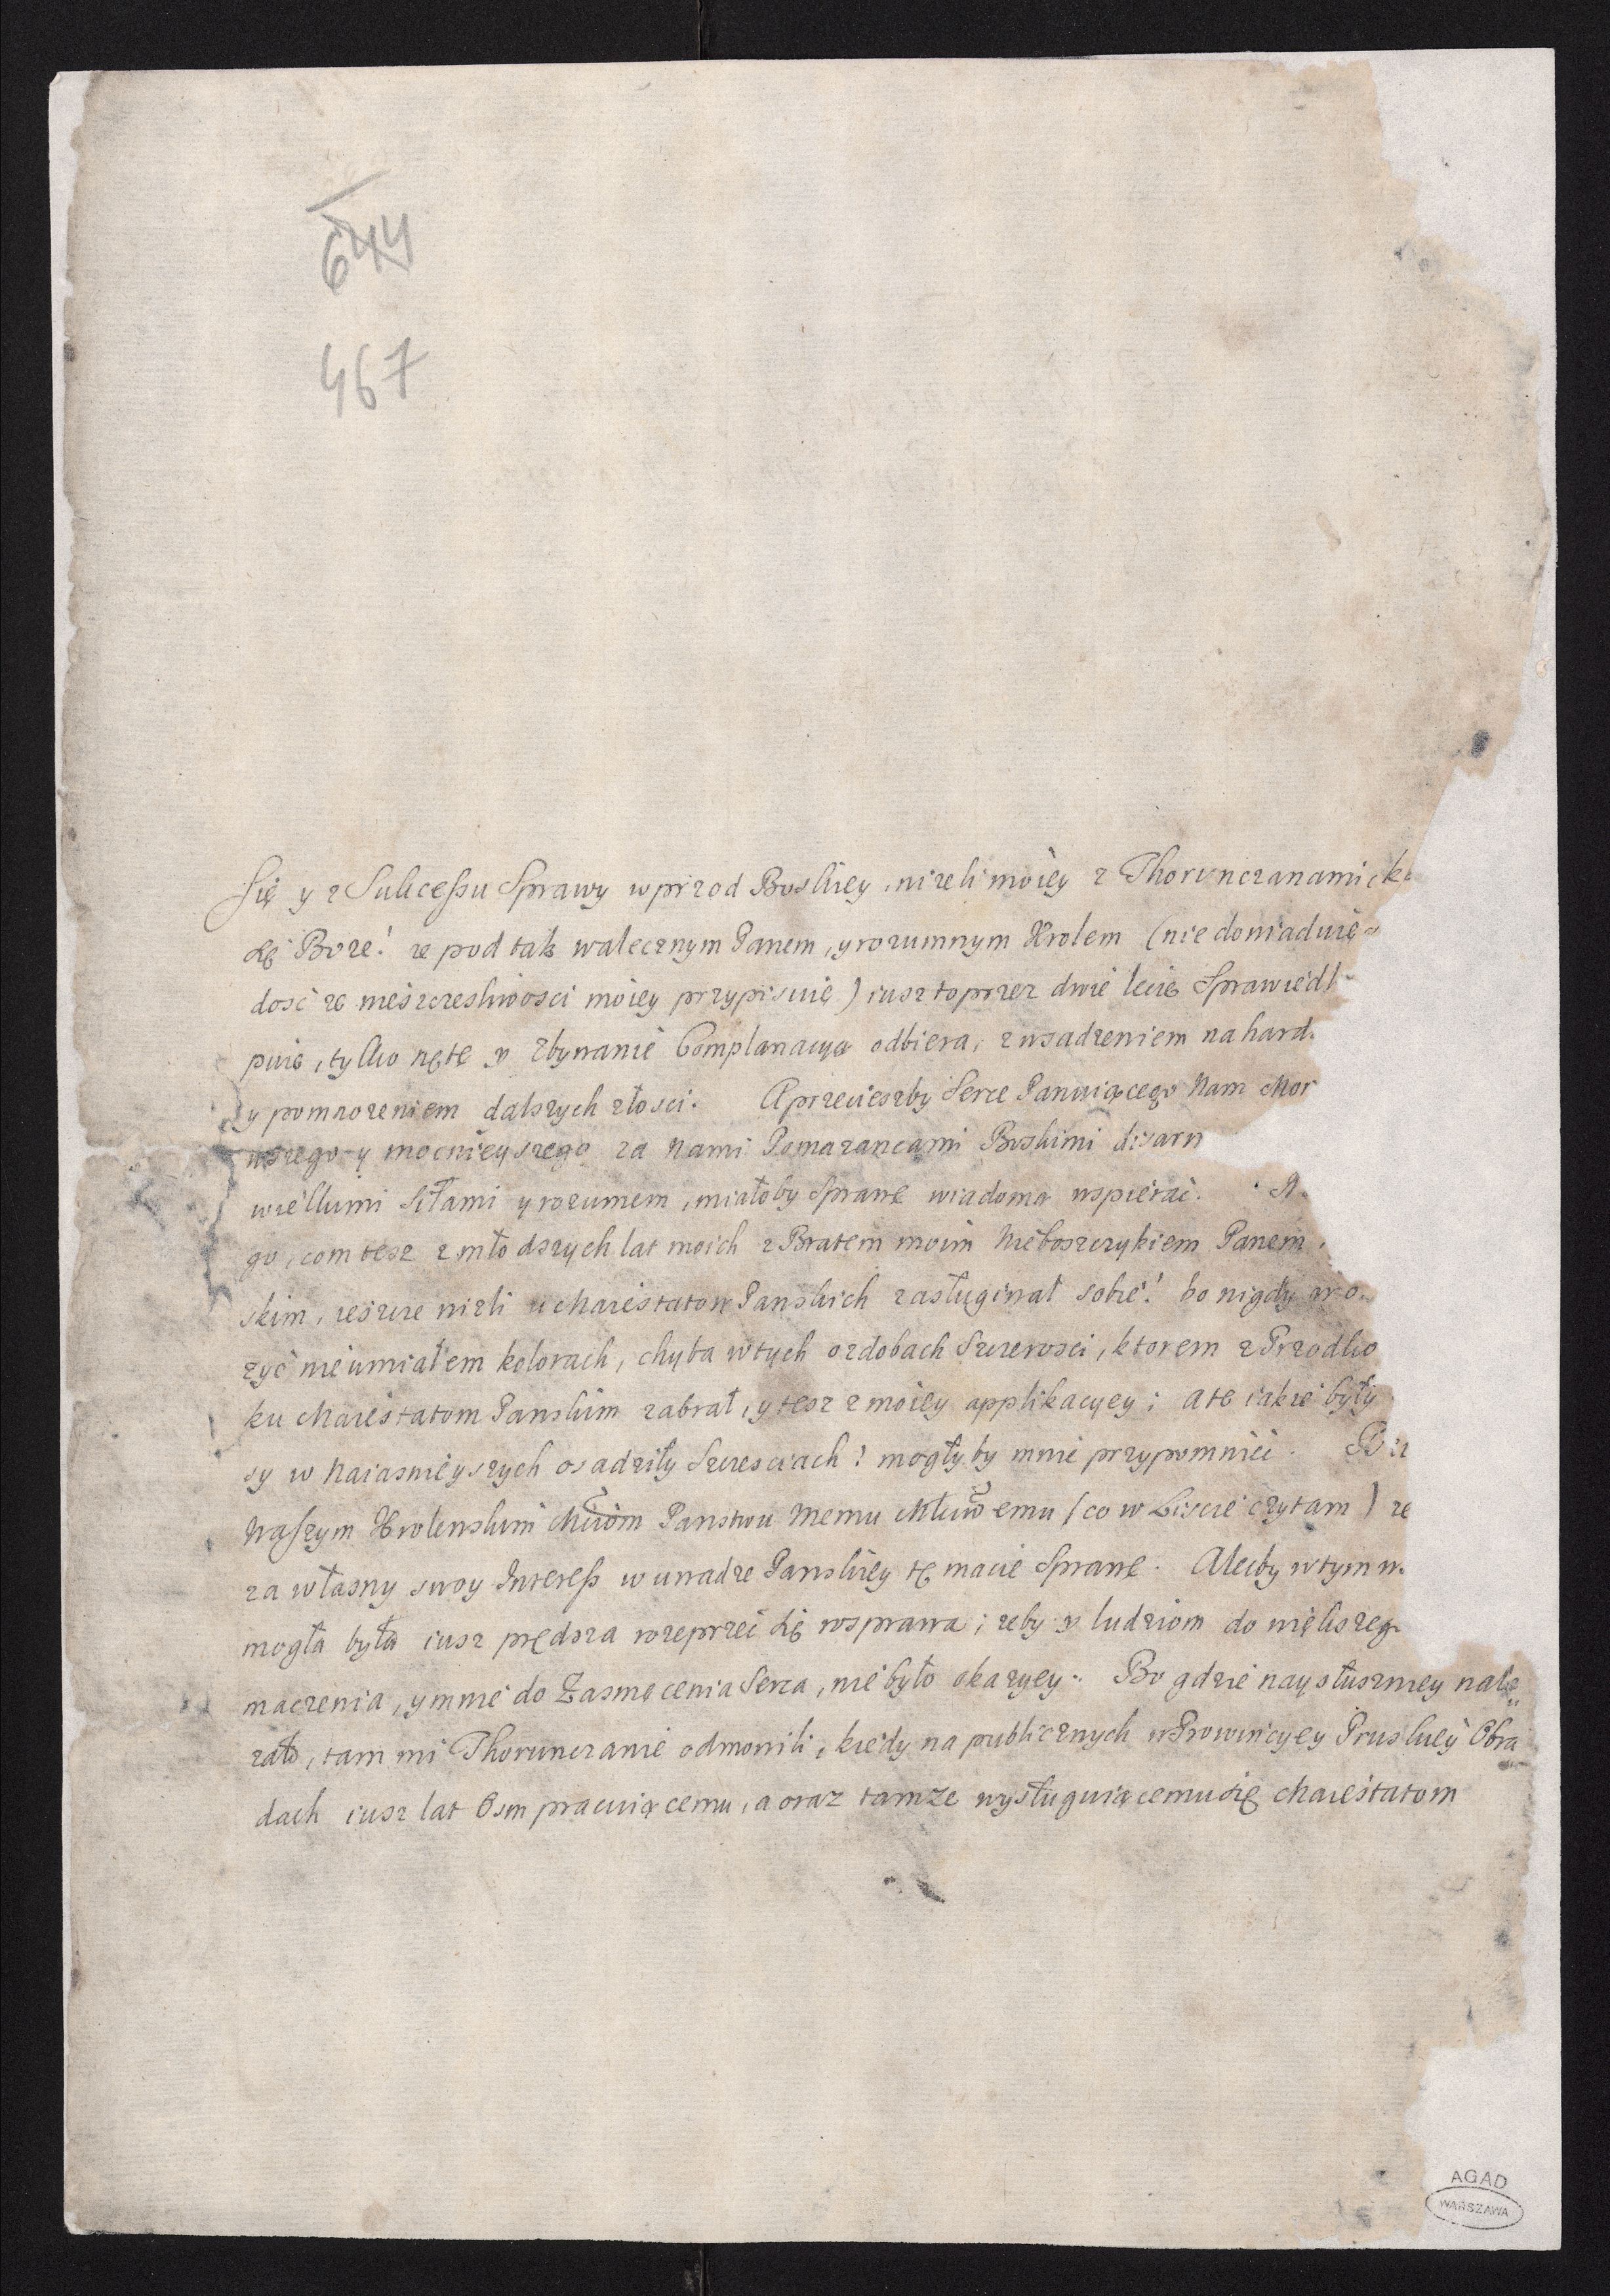 644
467
Się y z Sukcessu Sprawy wprzod Boskiey, nizeli moiey z Thorunczanami
się Boze! ze pod tak walecznym Panem, y rozumnym Krolem (nie doniaduię
dość ze niesczesliwosci moiey przypisuię) iusz to przez dwie lecie Sprawiedl
puie, tylko nętę y Zbywanie Complanacyą odbiera, z wsadzeniem na hard
y pomnozeniem dalszych złosci. A przecieszby Serce Panuiącego Nam Mor
wszego y mocnieyszego za Nami Pomazancami Boskimi
wielkimi Siłami y rozumem, miałoby Sprawę wiadomą wspierać. A
go, com tesz z młodszych lat moich z Bratem moim Nieboszczykiem Panem
skim, iescze nizli u Maiestatow Panskich zasługiwał sobie! bo nigdy w
zyć nie umiałem kolorach, chyba w tych ozdobach Szczerosci, ktorem z Przodko
ku Maiestatom Panskim zabrał, y tesz z moiey applikacyey; a te iakie były
sy w Naiasnieyszych osadziły Szczesciach! mogłyby mnie przypomniec.
Waszym Krolewskim Mciom Panstwu Memu Młciwemu (co w Liscie czytam) ze
za własny swoy Interess w uwadze Panskiey tę macie Sprawę. Alecby w tym
mogła była iusz prędsza wzeprzeć się rosprawa; zeby y ludziom do większeg
maczenia, y mnie do Zasmęcenia Serca, nie było okazyey. Bo gdzie naysłuszniey nale„
zało, tam mi Thorunczanie odmowili, kiedy na publicznych w Prowincyey Pruskiey Obra„
dach iusz lat Osm pracuiącemu, a oraz tamze wysługuiącemu się Maiestatom
AGAD
WARSZAWA